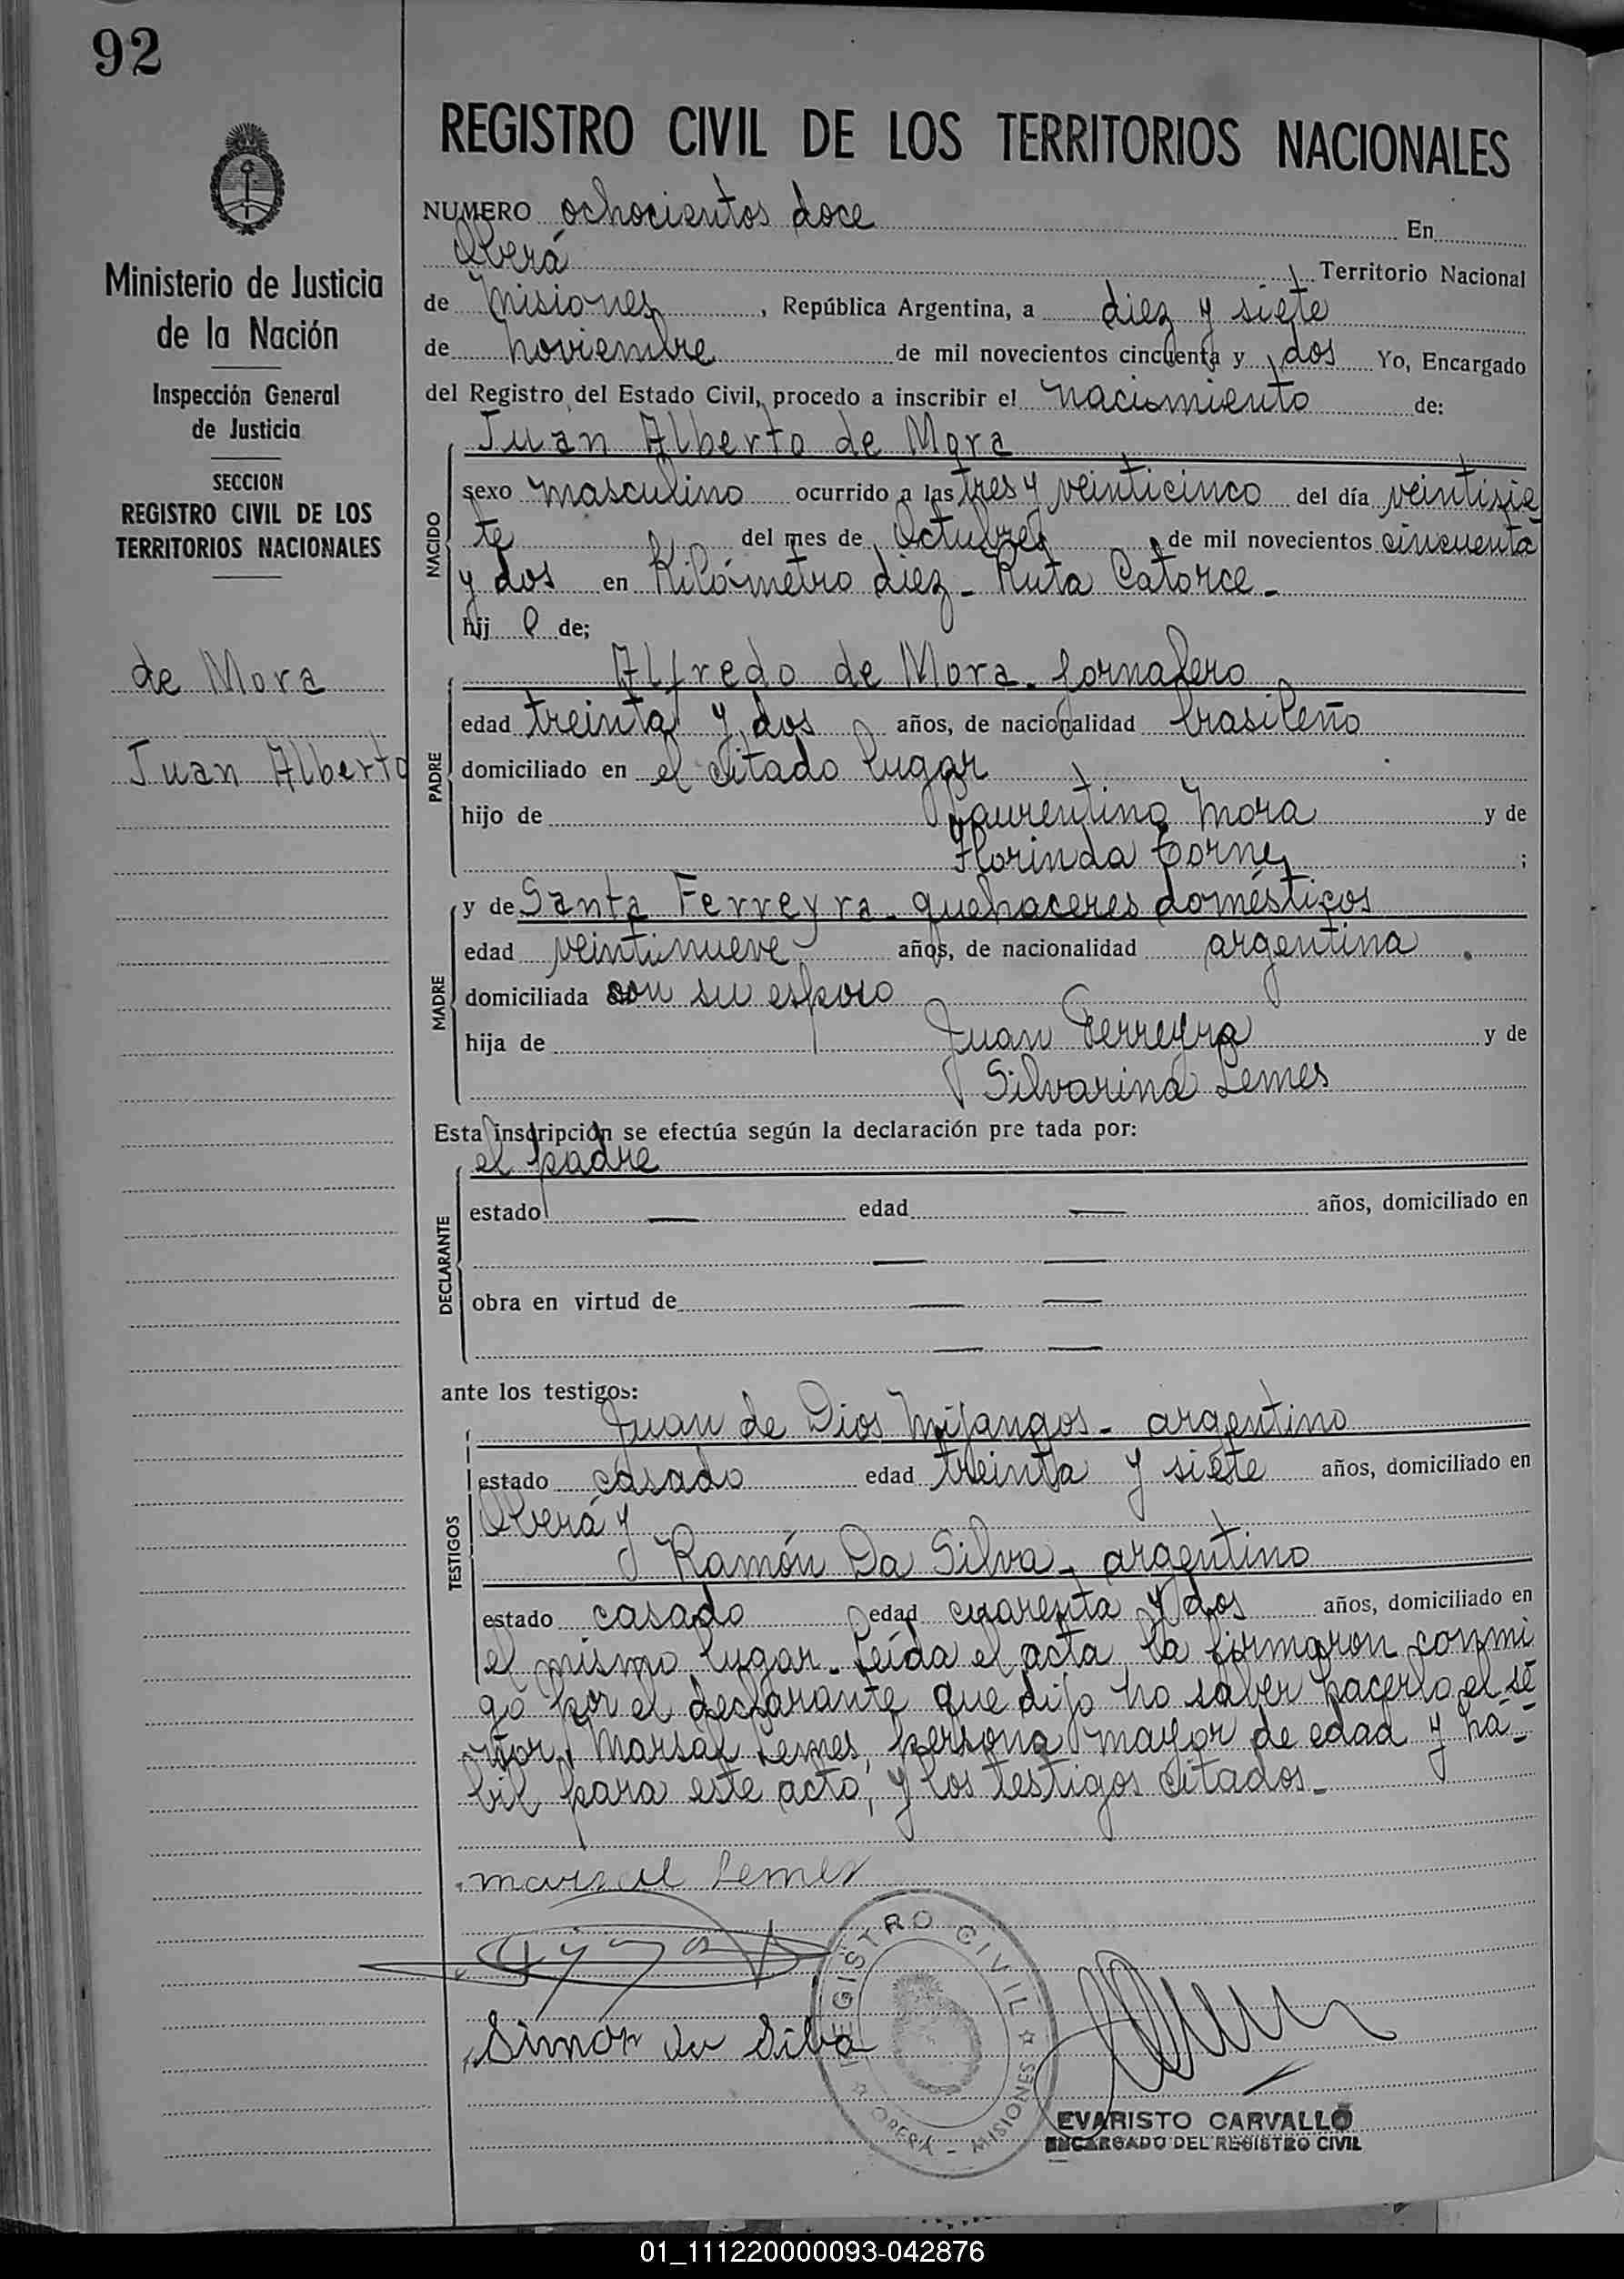 92
Ministerio de Justicia
de la Nación
Inspección General
de Justicia
SECCION
REGISTRO CIVIL DE LOS
TERRITORIOS NACIONALES
de Mora
Juan Alberto
REGISTRO CIVIL DE LOS TERRITORIOS NACIONALES
NUMERO ochocientos doce En
Oberá Territorio Nacional
de Misiones, República Argentina, a diez y siete
de noviembre de mil novecientos cincuenta y dos Yo, Encargado
del Registro del Estado Civil, procedo a inscribir el nacimiento de:
NACIDO
Juan Alberto de Mora
sexo masculino ocurrido a las tres y veinticinco del día veintisie
te del mes de Octubre de mil novecientos cincuenta
y dos en Kilómetro diez - Ruta Catorce -
hij o de;
PADRE
Alfredo de Mora - jornalero
edad treinta y dos años, de nacionalidad brasileño
domiciliado en el citado lugar
hijo de Laurentino Mora y de
Florinda ;
MADRE
y de Santa Ferreyra - quehaceres domésticos
edad veintinueve años, de nacionalidad argentina
domiciliada con su esposo
hija de Juan Ferreyra y de
Silvarina Lemes
Esta inscripción se efectúa según la declaración pre tada por:
DECLARANTE
el padre
estado — edad — años, domiciliado en
— —
obra en virtud de — —
— —
ante los testigos:
TESTIGOS
Juan de Dios Mijangos - argentino
estado casado edad treinta y siete años, domiciliado en
Oberá y
Ramón Da Silva - argentino
estado casado edad cuarenta y dos años, domiciliado en
el mismo lugar - Leída el acta la firmaron conmi
go por el declarante que dijo no saber hacerlo el se
ñor, Marsal Lemes, persona mayor de edad y há-
bil para este acto, y los testigos citados -
marzal Lemes
Simon da Silva
REGISTRO CIVIL
OBERÁ - MISIONES
EVARISTO CARVALLO
ENCARGADO DEL REGISTRO CIVIL
01_111220000093-042876